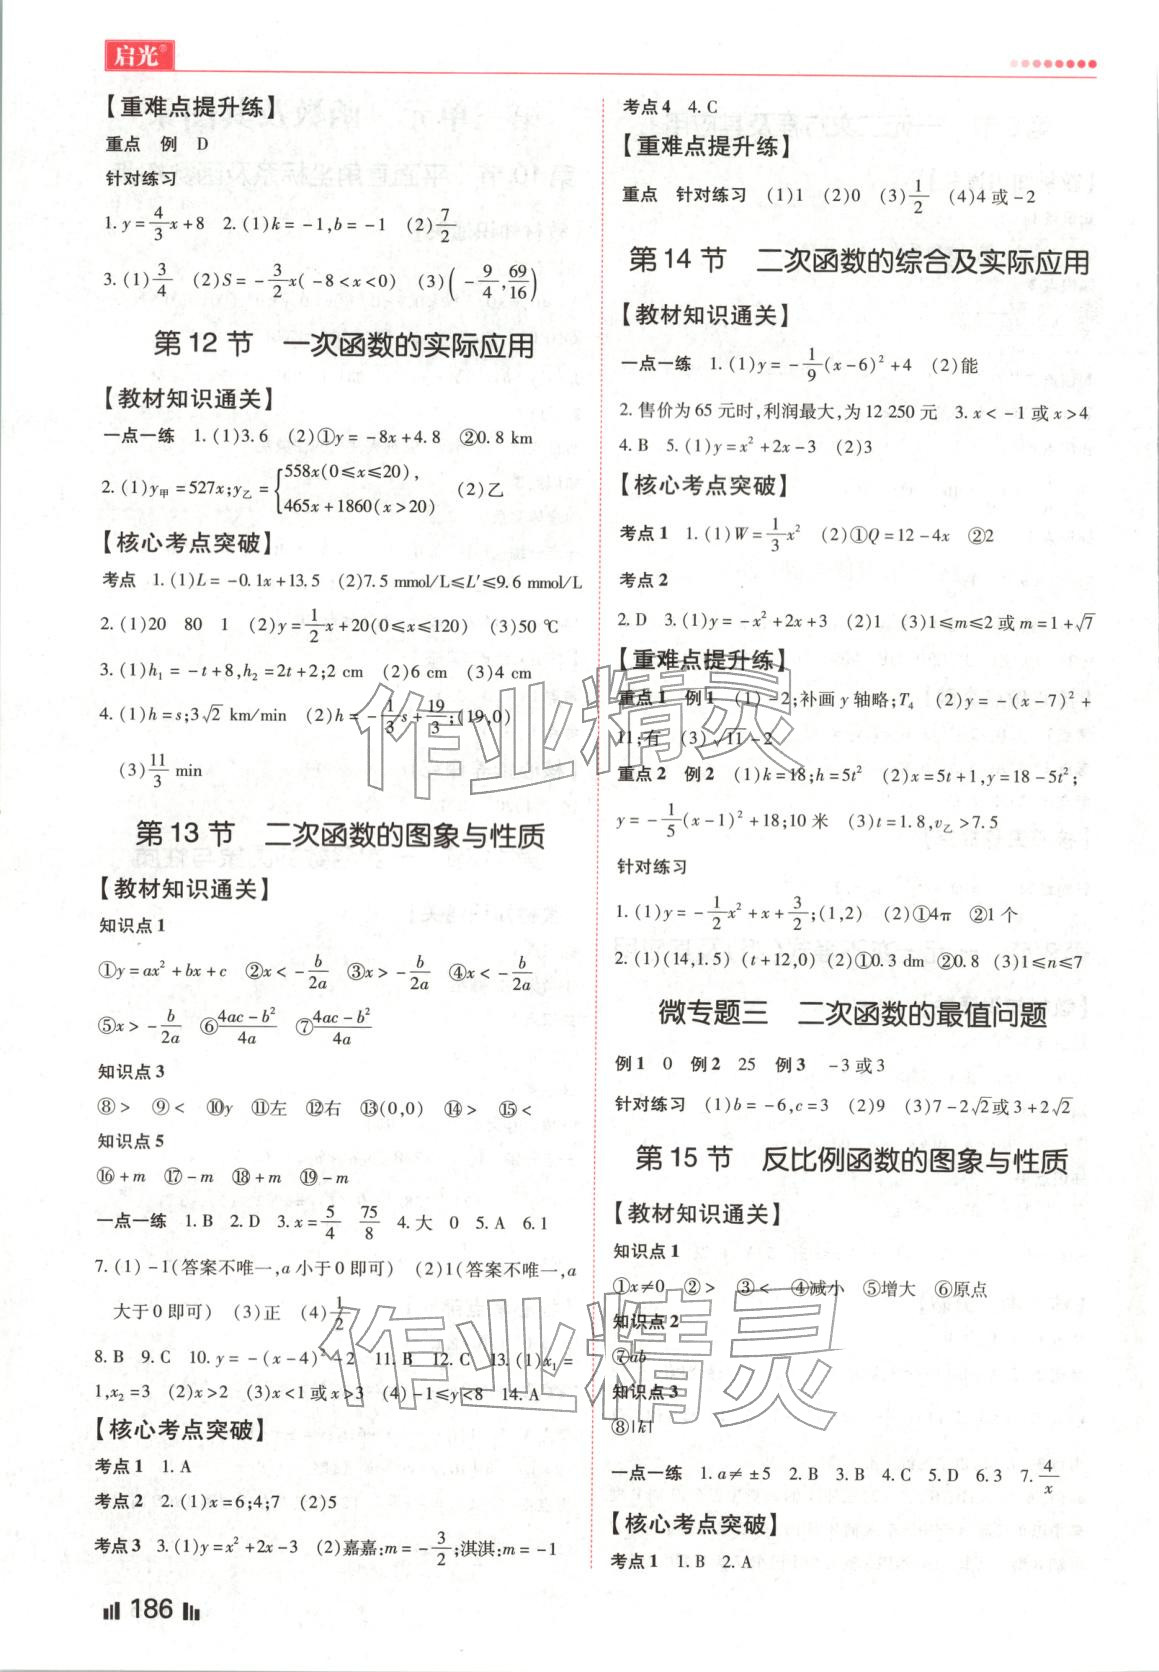 启光®
【重难点提升练】
重点 例 D
针对练习
1. y=4/3x+8 2. (1)k=-1,b=-1 (2)7/2
3. (1)3/4 (2)S=-3/2x(-8<x<0) (3)(-9/4,69/16)
第 12 节 一次函数的实际应用
【教材知识通关】
一点一练 1. (1)3.6 (2)①y=-8x+4.8 ②0.8 km
2. (1)y甲=527x;y乙={558x(0≤x≤20), 465x+1860(x>20) (2)乙
【核心考点突破】
考点 1. (1)L=-0.1x+13.5 (2)7.5 mmol/L≤L′≤9.6 mmol/L
2. (1)20 80 1 (2)y=1/2x+20(0≤x≤120) (3)50 ℃
3. (1)h₁=-t+8,h₂=2t+2;2 cm (2)6 cm (3)4 cm
4. (1)h=s;3√2 km/min (2)h=-1/3s+19/3;(19,0)
(3)11/3 min
第 13 节 二次函数的图象与性质
【教材知识通关】
知识点1
①y=ax²+bx+c ②x<-b/2a ③x>-b/2a ④x<-b/2a
⑤x>-b/2a ⑥(4ac-b²)/4a ⑦(4ac-b²)/4a
知识点3
⑧> ⑨< ⑩y ⑪左 ⑫右 ⑬(0,0) ⑭> ⑮<
知识点5
⑯+m ⑰-m ⑱+m ⑲-m
一点一练 1. B 2. D 3. x=5/4 75/8 4. 大 0 5. A 6. 1
7. (1)-1(答案不唯一,a小于0即可) (2)1(答案不唯一,a
大于0即可) (3)正 (4)1/2
8. B 9. C 10. y=-(x-4)²-2 11. B 12. C 13. (1)x₁=
1,x₂=3 (2)x>2 (3)x<1或x>3 (4)-1≤y<8 14. A
【核心考点突破】
考点1 1. A
考点2 2. (1)x=6;4;7 (2)5
考点3 3. (1)y=x²+2x-3 (2)嘉嘉:m=-3/2;淇淇:m=-1
186
考点4 4. C
【重难点提升练】
重点 针对练习 (1)1 (2)0 (3)1/2 (4)4或-2
第 14 节 二次函数的综合及实际应用
【教材知识通关】
一点一练 1. (1)y=-1/9(x-6)²+4 (2)能
2. 售价为65元时,利润最大,为12 250元 3. x<-1或x>4
4. B 5. (1)y=x²+2x-3 (2)3
【核心考点突破】
考点1 1. (1)W=1/3x² (2)①Q=12-4x ②2
考点2
2. D 3. (1)y=-x²+2x+3 (2)1 (3)1≤m≤2或m=1+√7
【重难点提升练】
重点1 例1 (1)-2;补画y轴略;T₄ (2)y=-(x-7)²+
11;有 (3)√11-2
重点2 例2 (1)k=18;h=5t² (2)x=5t+1,y=18-5t²;
y=-1/5(x-1)²+18;10米 (3)t=1.8,v乙>7.5
针对练习
1. (1)y=-1/2x²+x+3/2;(1,2) (2)①4π ②1个
2. (1)(14,1.5) (t+12,0) (2)①0.3 dm ②0.8 (3)1≤n≤7
微专题三 二次函数的最值问题
例1 0 例2 25 例3 -3或3
针对练习 (1)b=-6,c=3 (2)9 (3)7-2√2或3+2√2
第 15 节 反比例函数的图象与性质
【教材知识通关】
知识点1
①x≠0 ②> ③< ④减小 ⑤增大 ⑥原点
知识点2
⑦ab
知识点3
⑧|k|
一点一练 1. a≠±5 2. B 3. B 4. C 5. D 6. 3 7. 4/x
【核心考点突破】
考点1 1. B 2. A
作业精灵
作业精灵